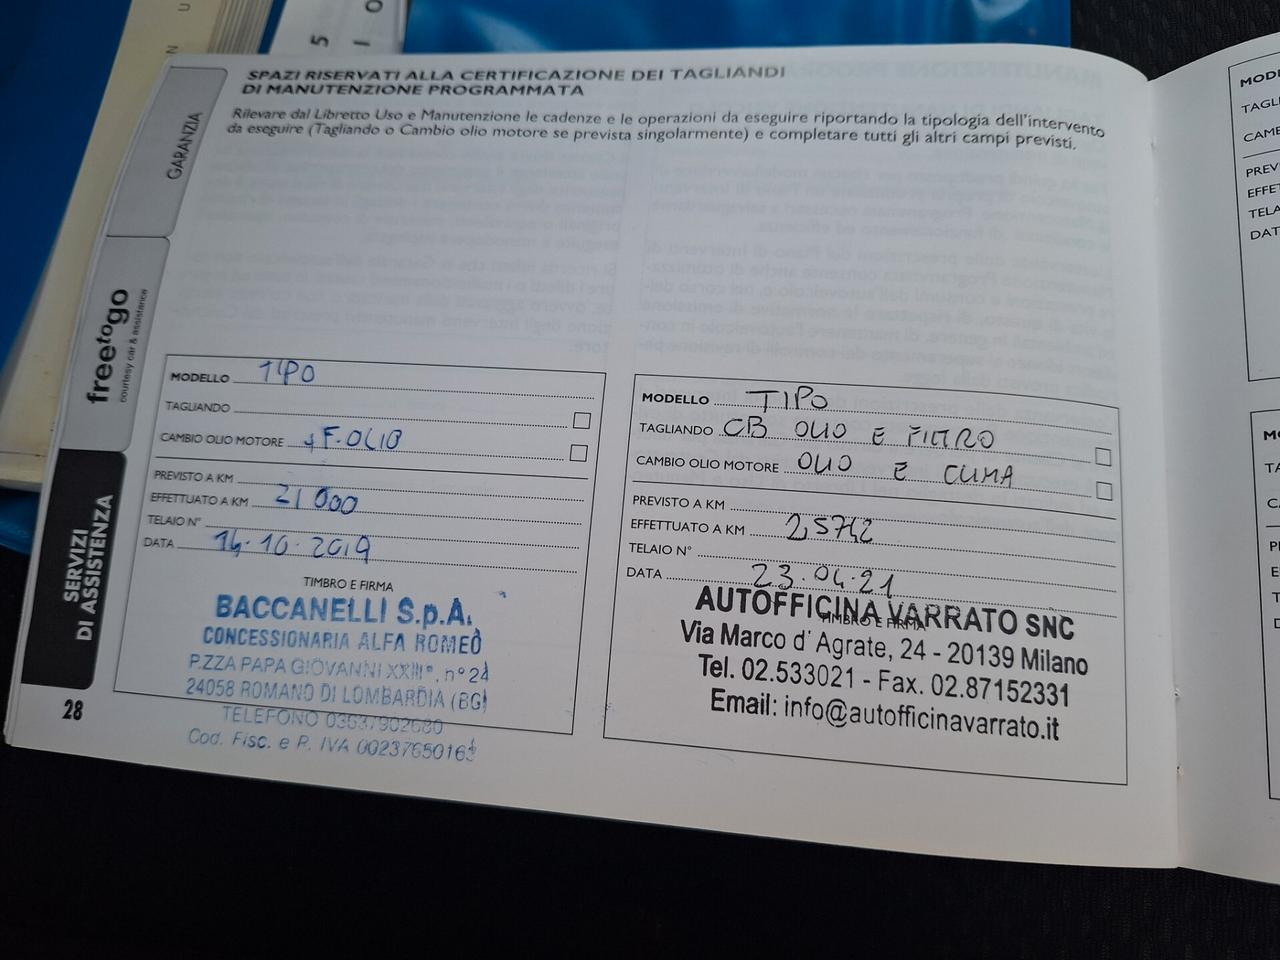 SPAZI RISERVATI ALLA CERTIFICAZIONE DEI TAGLIANDI
DI MANUTENZIONE PROGRAMMATA
Rilevare dal Libretto Uso e Manutenzione le cadenze e le operazioni da eseguire riportando la tipologia dell'intervento
da eseguire (Tagliando o Cambio olio motore se prevista singolarmente) e completare tutti gli altri campi previsti.
GARANZIA
freetogo
courtesy car & assistance
SERVIZI
DI ASSISTENZA
28
MODELLO TIPO
TAGLIANDO
CAMBIO OLIO MOTORE + F. OLIO
PREVISTO A KM
EFFETTUATO A KM 21000
TELAIO N°
DATA 14.10.2019
TIMBRO E FIRMA
BACCANELLI S.p.A.
CONCESSIONARIA ALFA ROMEO
P.ZZA PAPA GIOVANNI XXIII°, n° 24
24058 ROMANO DI LOMBARDIA (BG)
TELEFONO 0363/902680
Cod. Fisc. e P. IVA
MODELLO TIPO
TAGLIANDO CB OLIO E FILTRO
CAMBIO OLIO MOTORE OLIO E CLIMA
PREVISTO A KM
EFFETTUATO A KM 25742
TELAIO N°
DATA 23.04.21
TIMBRO E FIRMA
AUTOFFICINA VARRATO SNC
Via Marco d'Agrate, 24 - 20139 Milano
Tel. 02.533021 - Fax. 02.87152331
Email: info@autofficinavarrato.it